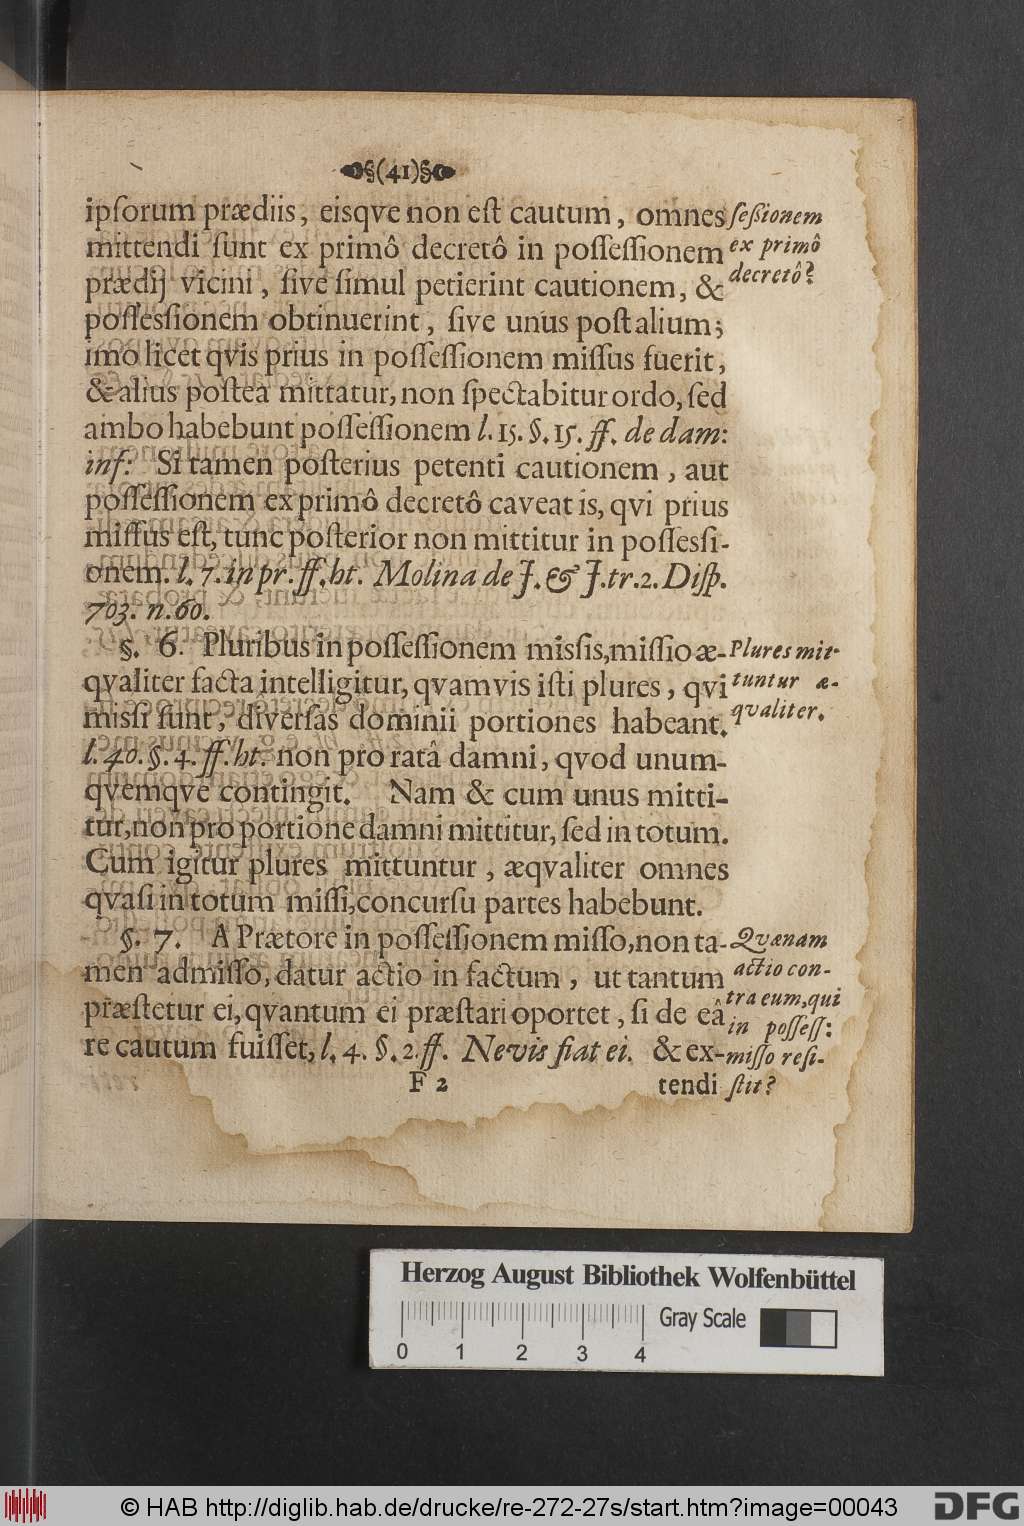 §(41)§
ipſorum prædiis, eisqve non eſt cautum, omnes
mittendi ſunt ex primô decretô in poſſeſſionem
prædij vicini, ſive ſimul petierint cautionem, &
poſſesſionem obtinuerint, ſive unus poſt alium;
imo licet qvis prius in poſſeſſionem miſſus fuerit,
& alius poſtea mittatur, non ſpectabitur ordo, ſed
ambo habebunt poſſeſſionem l. 15. §. 15. ff. de dam:
inf: Si tamen poſterius petenti cautionem, aut
poſſeſſionem ex primô decretô caveat is, qvi prius
miſſus eſt, tunc poſterior non mittitur in poſſesſi-
onem. l. 7. in pr. ff. ht. Molina de J. & J. tr. 2. Diſp.
703. n. 60.
§. 6. Pluribus in poſſeſſionem misſis, miſſio æ-
qvaliter facta intelligitur, qvamvis iſti plures, qvi
misſi ſunt, diverſas dominii portiones habeant.
l. 40. §. 4. ff. ht. non pro ratâ damni, qvod unum-
qvemqve contingit. Nam & cum unus mitti-
tur, non pro portione damni mittitur, ſed in totum.
Cum igitur plures mittuntur, æqvaliter omnes
qvaſi in totum miſſi, concurſu partes habebunt.
§. 7. A Prætore in poſſeſſionem miſſo, non ta-
men admiſſo, datur actio in factum, ut tantum
præſtetur ei, qvantum ei præſtari oportet, ſi de eâ
re cautum fuiſſet, l. 4. §. 2. ff. Nevis fiat ei. & ex-
F 2
tendi
ſeßionem
ex primô
decretô?
Plures mit-
tuntur æ-
qvaliter.
Qvænam
actio con-
tra eum, qui
in poſſeſſ:
miſſo reſi-
ſtit?
Herzog August Bibliothek Wolfenbüttel
Gray Scale
0 1 2 3 4
© HAB http://diglib.hab.de/drucke/re-272-27s/start.htm?image=00043
DFG